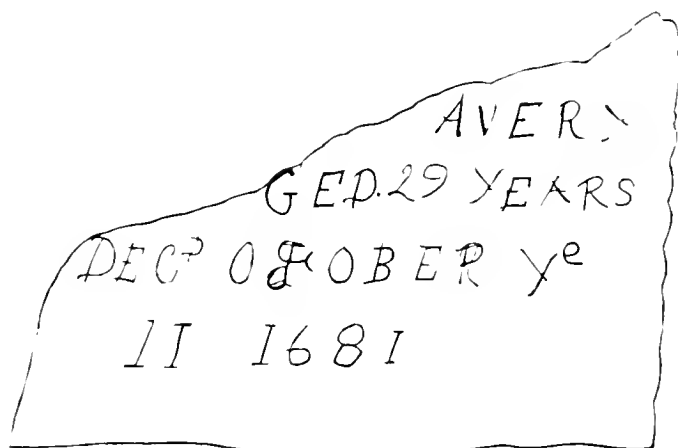 AVERY
GED. 29 YEARS
DECD OCTOBER Ye
11 1681